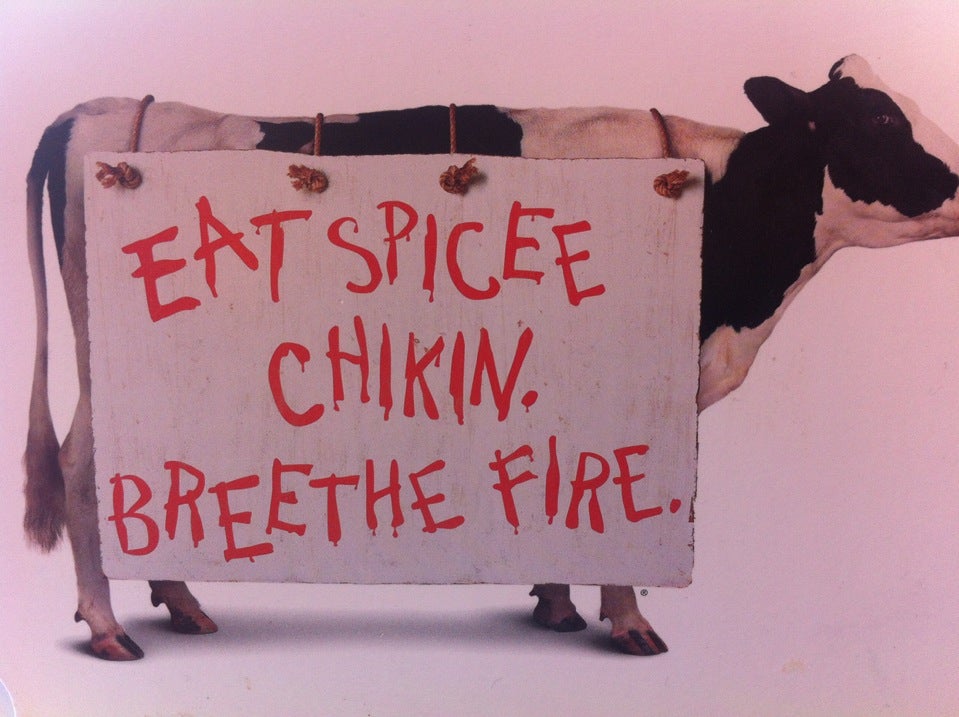 EAT SPICEE
CHIKIN.
BREETHE FIRE.
®